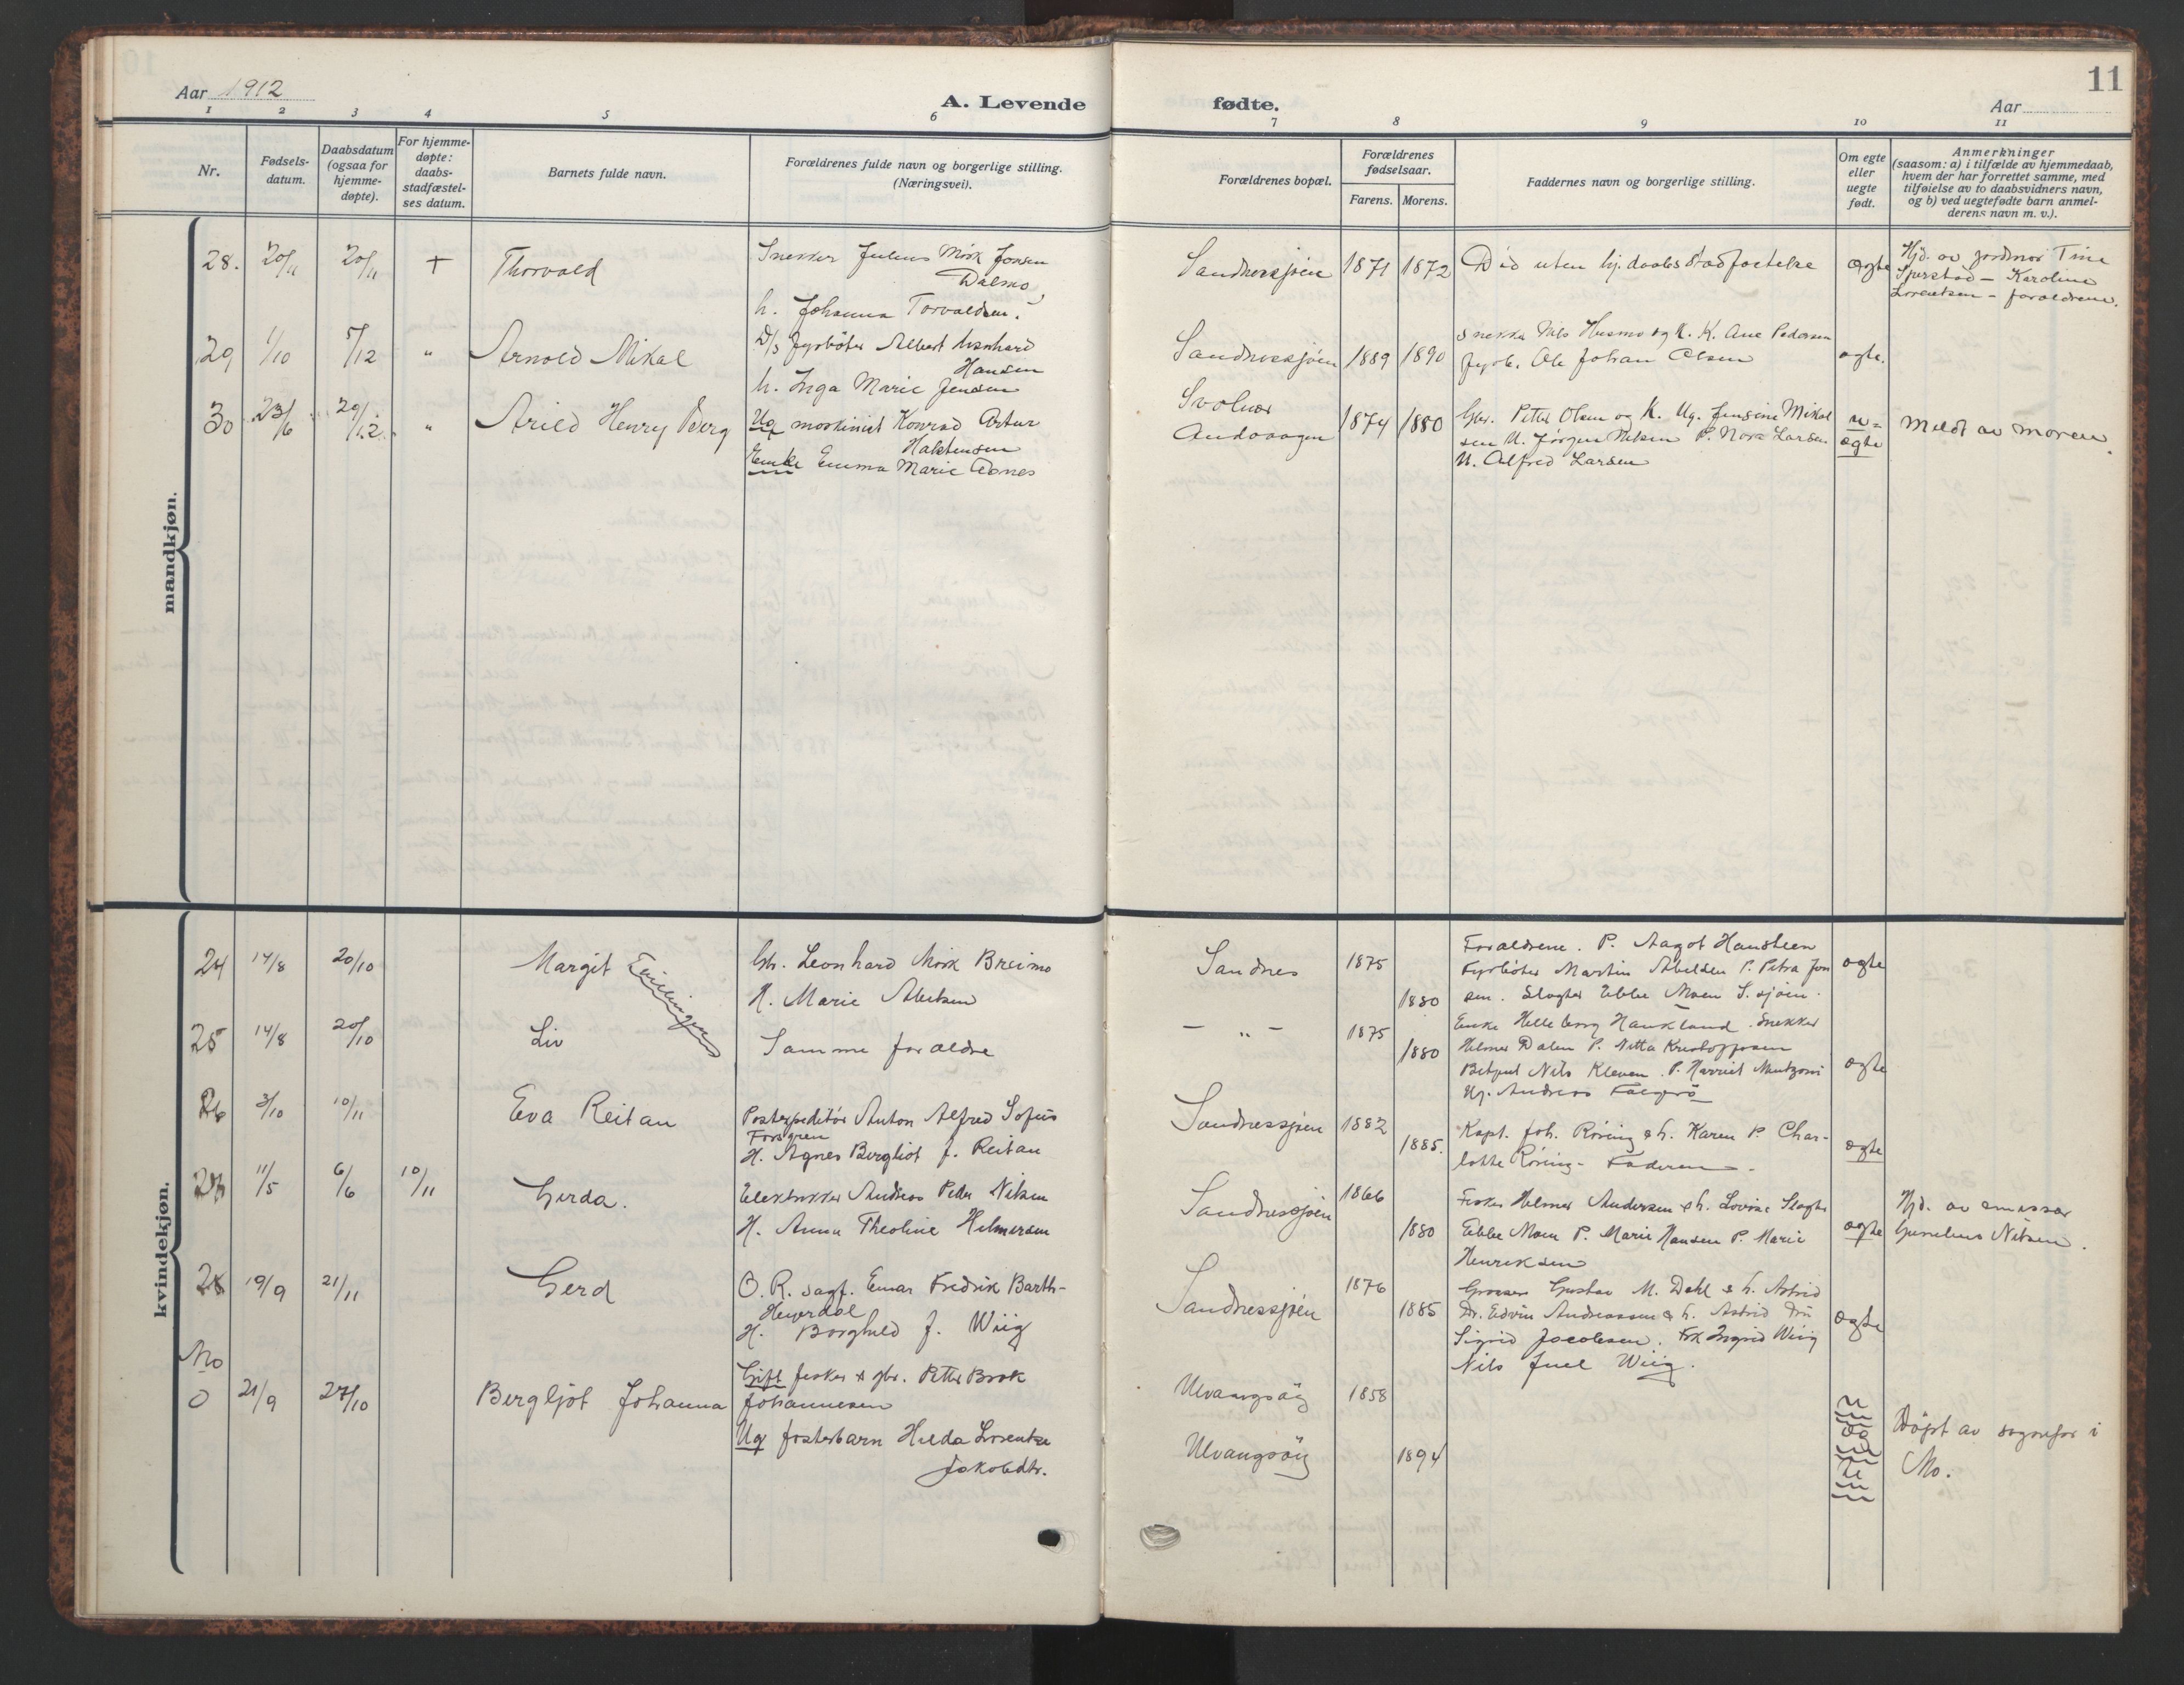 Aar 1912
A. Levende
1 2 3 4 5 6
Nr.
Fødsels-datum.
Daabsdatum (ogsaa for hjemme-døpte).
For hjemme-døpte: daabs-stadfæstel-ses datum.
Barnets fulde navn.
Forældrenes fulde navn og borgerlige stilling. (Næringsvei).
mandkjøn.
28. 20/11 20/11 + Thorvald
Snekker Julius Mörk Jonsen
Dalmo,
h. Johanna Torvaldsen.
29 1/10 5/12 " Arnold Mikal
D/s fyrböter Albert Leonhard
Hansen
h. Inga Marie Jensen
30 23/6 29/12 " Arild Henry Berg
Ug maskinist Konrad Artur
Haktensen
Enke Emma Marie
kvindekjøn.
24 14/8 20/10 Margit
Gbr. Leonhard Mörk Breimo
H. Marie Abelsen
25 14/8 20/10 Liv
Tvillinger
Samme forældre
26 3/10 10/11 Eva Reitan
Postexpeditör Anton Alfred Sofus
Forsgren
H. Agnes Bergliot f. Reitan
27 11/5 6/6 10/11 Gerda.
Elektriker Andreas Peder Nilsen
H. Anna Theoline Hilmarsen
28 19/9 21/11 Gerd
O. R. sagf. Einar Fredrik Barth-
Heyerdal
H. Borghild f. Wiig
Mo
0 21/9 27/10 Bergljot Johanna
Gift fisker & gbr. Petter Brok
Johannesen
Ug fosterbarn Hilda Lorentze
Jakobdtr.
fødte.
11
Aar
7 8 9 10 11
Forældrenes bopæl.
Forældrenes fødselsaar.
Farens. Morens.
Faddernes navn og borgerlige stilling.
Om egte eller uegte født.
Anmerkninger
(saasom: a) i tilfælde av hjemmedaab, hvem der har forrettet samme, med tilføielse av to daabsvidners navn, og b) ved uegtefødte barn anmel-derens navn m. v.).
Sandnessjöen 1871 1872 Död uten hj. daabs stadfæstelse ægte
Hjd. av jordmor Tine
Sjurstad - Karoline
Lorentsen - forældrene.
Sandnessjöen 1889 1890
Snekker Nils Husmo og K. K. Ane Pedersen
fyrb. Ole Johan Olsen
ægte.
Svolvær
1874 1880
Gbr. Petter Olsen og K. Ug. Jensine Mikal
sen U. Jörgen Nilsen P. Nora Larsen
U. Alfred Larsen
u=
ægte
Meldt av moren.
Sandnes 1875
1880
Forældrene. P. Aagot Hansteen
Fyrböter Martin Abelsen P. Petra Jon
sen. Slagter Ebbe Moen S. sjöen.
ægte
— " — 1875
1880
Enke Helleborg Haukland. Snekker
Helmer Dalen P. Nitta Kristoffersen
Nils Kleven. P. Harriet
Ug. Andreas
ægte
Sandnessjöen 1882
1885.
Kapt. Joh. Röring & h. Karen P. Char-
lotte Röring - Faderen -
ægte
Sandnessjöen 1866
1880
Fisker Helmer Andersen & h. Lovise Slagter
Ebbe Moen P. Marie Hansen P. Marie
Henriksen
ægte
Hjd. av emissær
Nilsen.
Sandnessjöen 1876
1885
Grosserer Gustav M. Dahl & h. Astrid
Dr. Edvin Andreassen & h. Astrid Fru
Sigrid Jacobsen. Frk Ingrid Wiig
Nils Juel Wiig.
ægte
Ulvangsöy 1858
Ulvangsöy 1894
u
æg
te
Döpt av sognepr i
Mo.